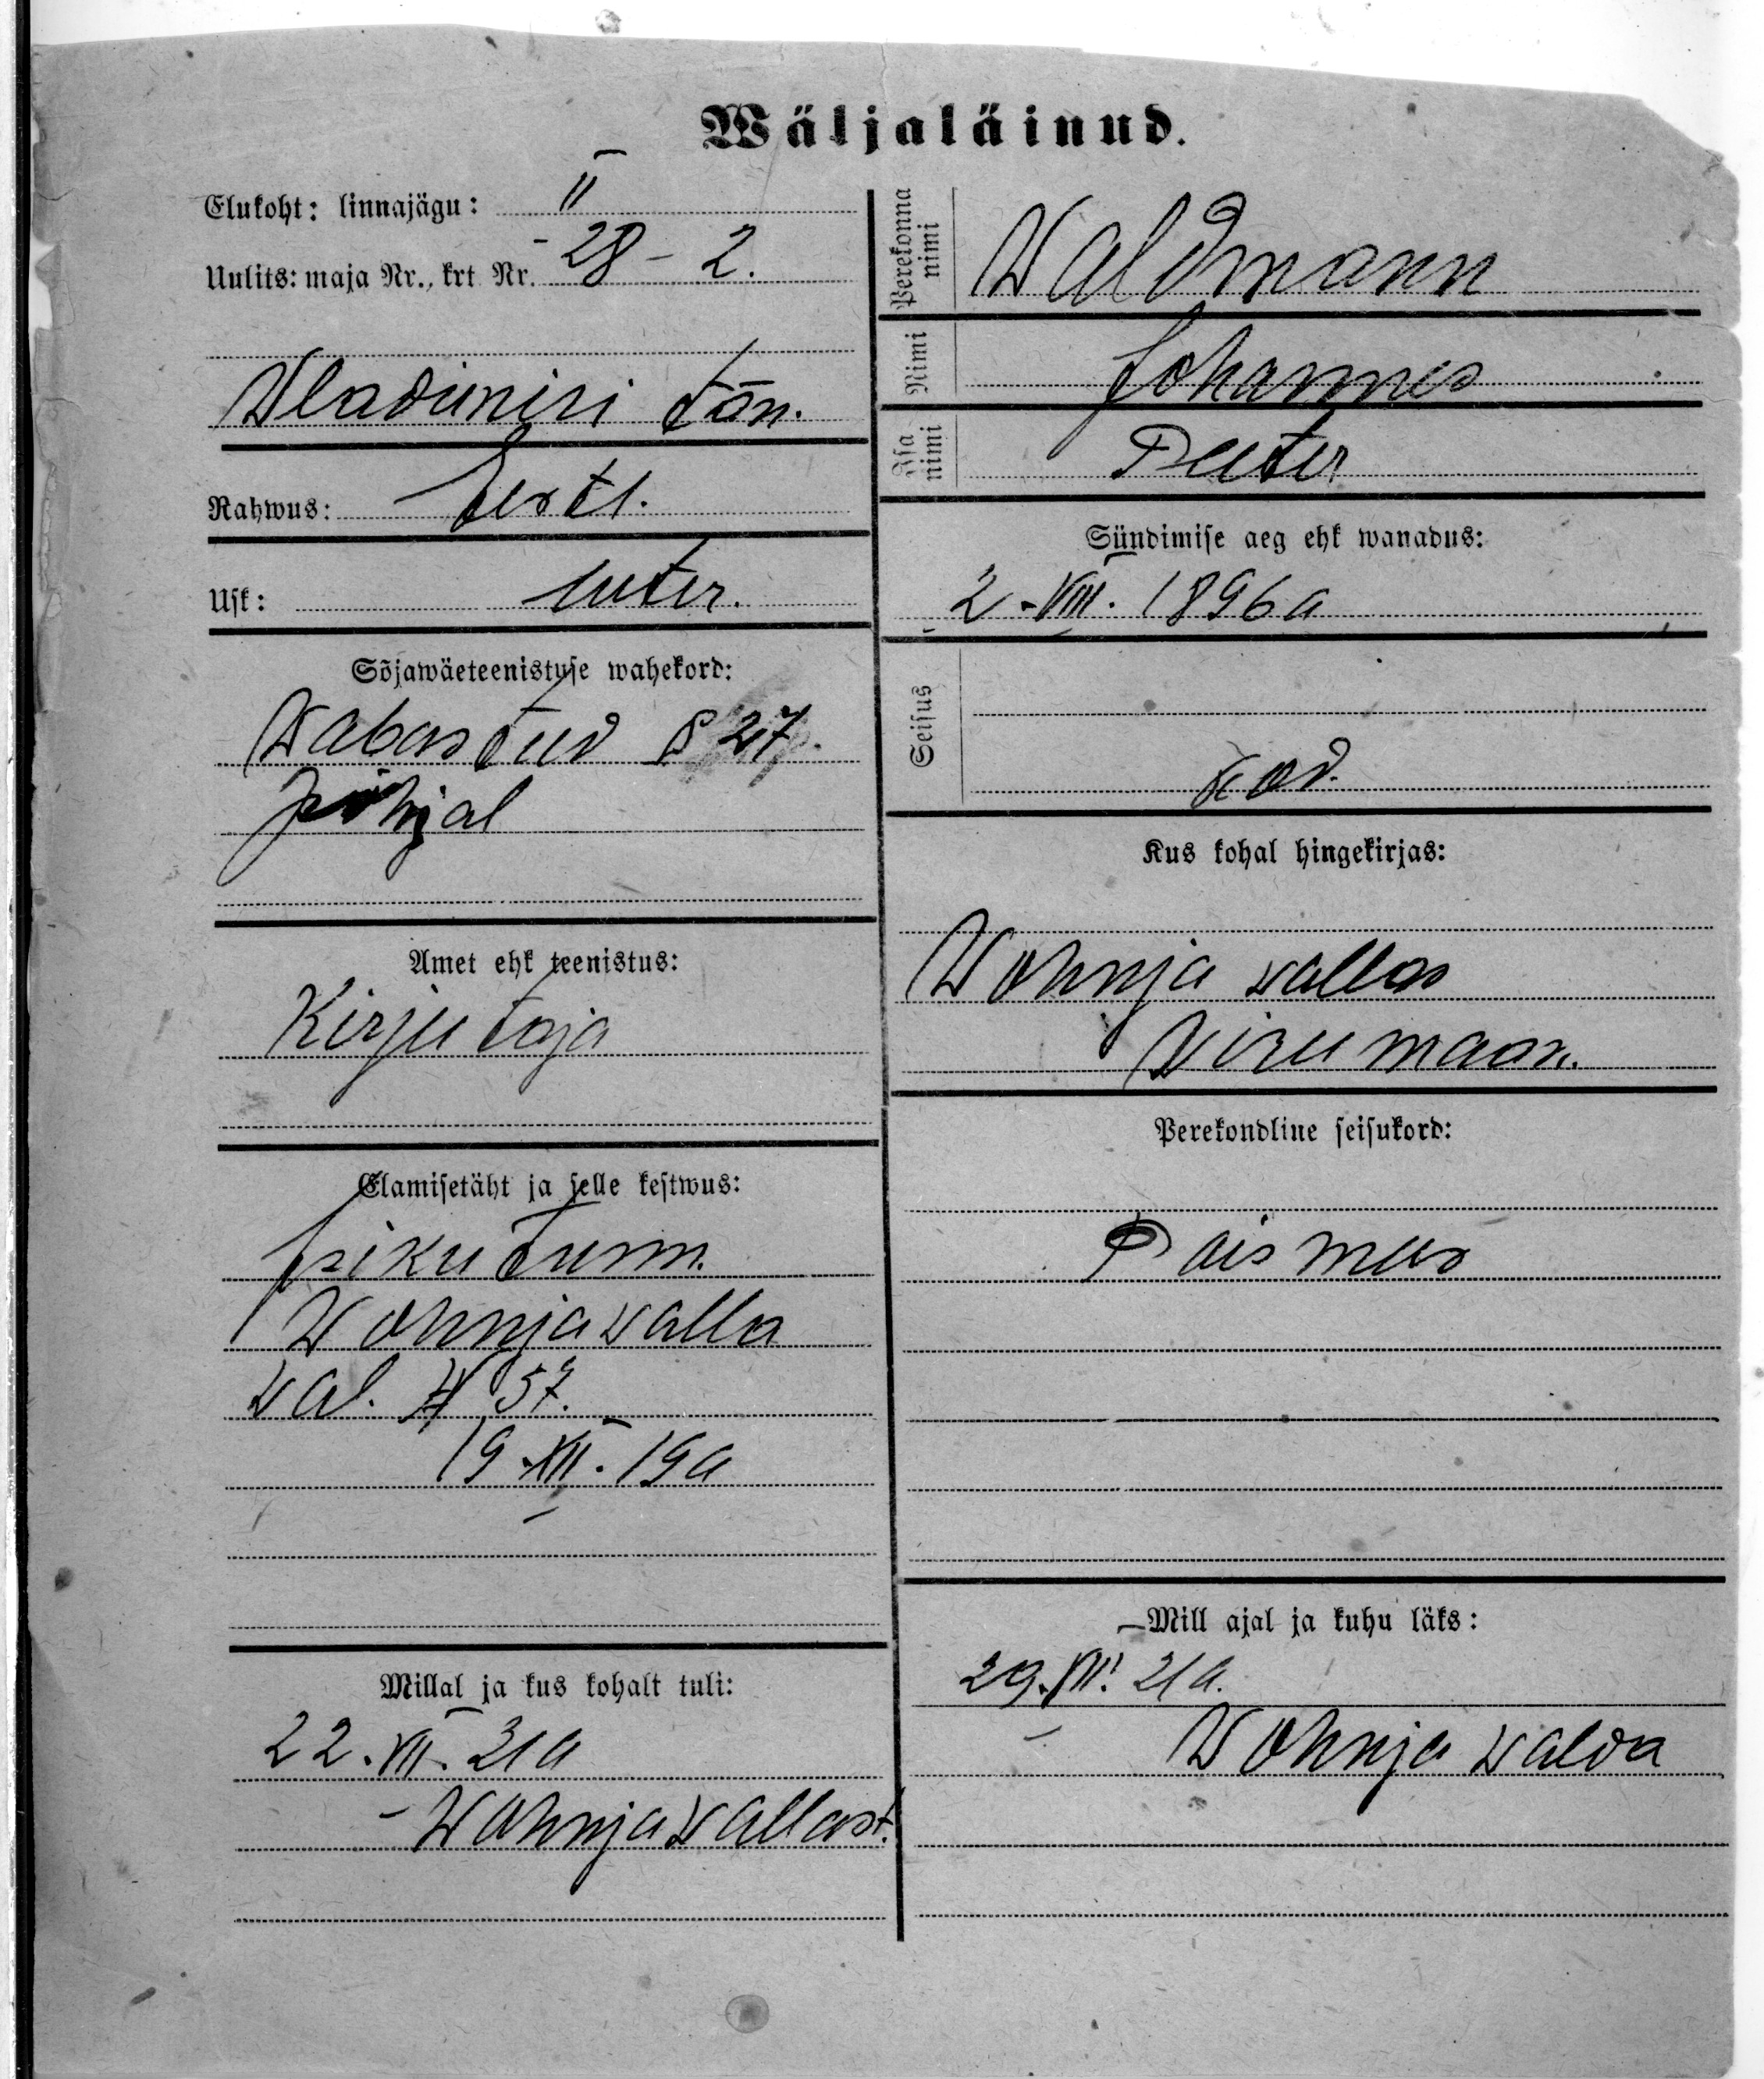 Wäljaläinud.
Elukoht: linnajägu: II
Uulits: maja Nr., krt Nr. 28 - 2.
Wladimiri tän.
Rahwus: Eesti.
Usk: luter.
Sõjawäeteenistuse wahekord:
Wabastud § 27.
põhjal
Amet ehk teenistus:
Kirjutaja
Elamisetäht ja selle kestwus:
Isikutunn.
Wohnja walla
wal. N 57.
19.XII.19a
Millal ja kus kohalt tuli:
22.VII.21a
Wohnja wallast.
Perekonna nimi Waldmann
Nimi Johannes
Isa nimi Peeter
Sündimise aeg ehk wanadus:
2.VIII.1896a
Seisus
kod.
Kus kohal hingekirjas:
Wohnja wallas
Wirumaan.
Perekondline seisukord:
Poismees
Mill ajal ja kuhu läks:
29.VII.21a.
Wohnja walda